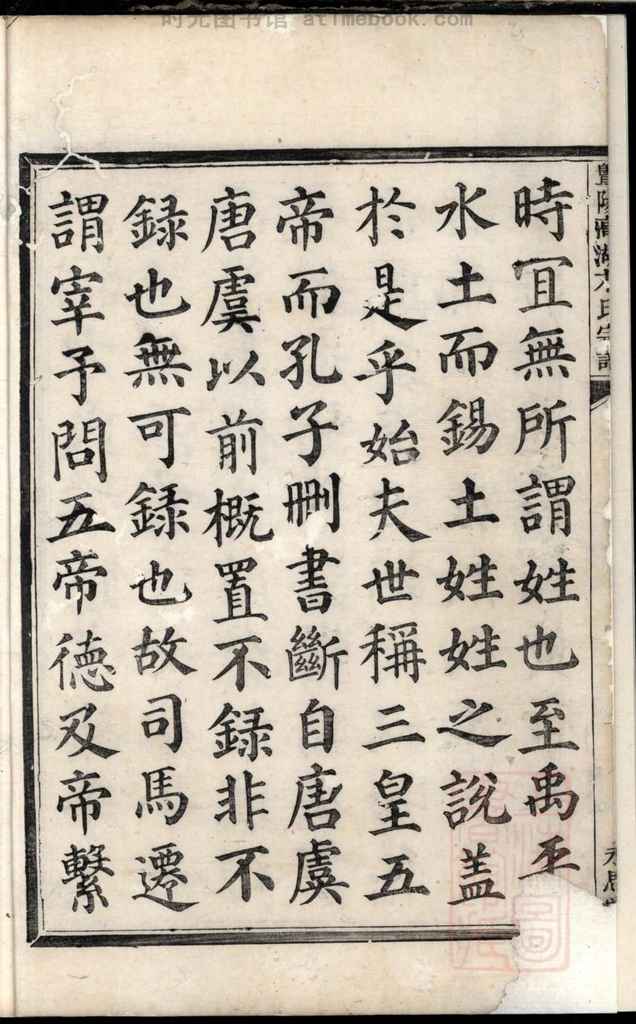 时光图书馆 atimebook.com
時宜無所謂姓也至禹平
水土而錫土姓姓之說蓋
於是乎始夫世稱三皇五
帝而孔子刪書斷自唐虞
唐虞以前概置不録非不
録也無可録也故司馬遷
謂宰予問五帝德及帝繫